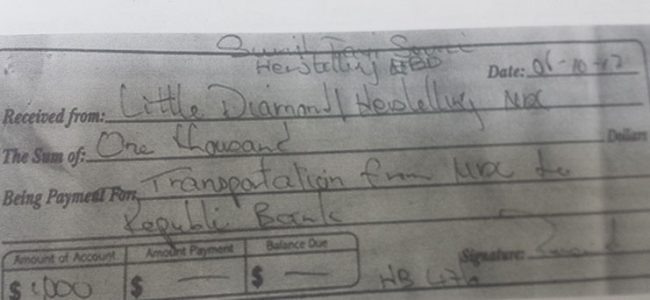 Sunil Taxi Service
Herstelling EBD
Date: 06-10-17
Received from: Little Diamond / Herstelling NDC
The Sum of: One thousand Dollars
Being Payment For: Transpotation from NDC to
Republi Bank
Amount of Account Amount Payment Balance Due
$ 1,000 $ — $ —
Signature: